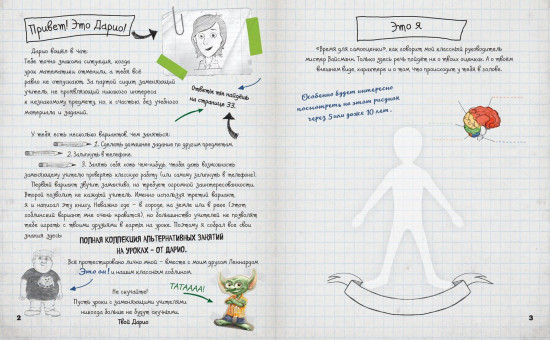 Привет! Это Дарио!
Дарио вошёл в чат.
Тебе точно знакома ситуация, когда
урок математики отменили, а тебя всё
равно не отпускают. За партой сидит заменяющий
учитель, не проявляющий никакого интереса
к названному предмету, но, к счастью, без учебного
материала и заданий.
Ответы ты найдёшь
на странице 33.
У тебя есть несколько вариантов, чем заняться:
1. Сделать домашнее задание по другим предметам.
2. Залипнуть в телефоне.
3. Занять себя хоть чем-нибудь, чтобы дать возможность
заменяющему учителю проверять классную работу (или самому залипнуть в телефоне).
Первый вариант звучит заманчиво, но требует огромной заинтересованности.
Второй позволит не каждый учитель. Именно используя третий вариант,
я и написал эту книгу. Неважно где – в городе, на земле или в реке (этот
гоблинский вариант мне очень нравится), но большинство учителей не позволят
тебе играть с твоими друзьями в карты на уроке. Поэтому я собрал все свои
знания здесь:
ПОЛНАЯ КОЛЛЕКЦИЯ АЛЬТЕРНАТИВНЫХ ЗАНЯТИЙ
НА УРОКАХ – ОТ ДАРИО.
Всё протестировано лично мной – вместе с моим другом Леннардом
Это он! и нашим классным гоблином.
ТАТАААА!
Не скучайте!
Пусть уроки с заменяющими учителями
никогда больше не будут скучными.
Твой Дарио
2
Это я
«Время для самооценки», как говорит мой классный руководитель
мистер Вайсманн. Только здесь речь пойдёт не о твоих оценках. А о твоём
внешнем виде, характере и о том, что происходит у тебя в голове.
Особенно будет интересно
посмотреть на этот рисунок
через 5 или даже 10 лет.
3